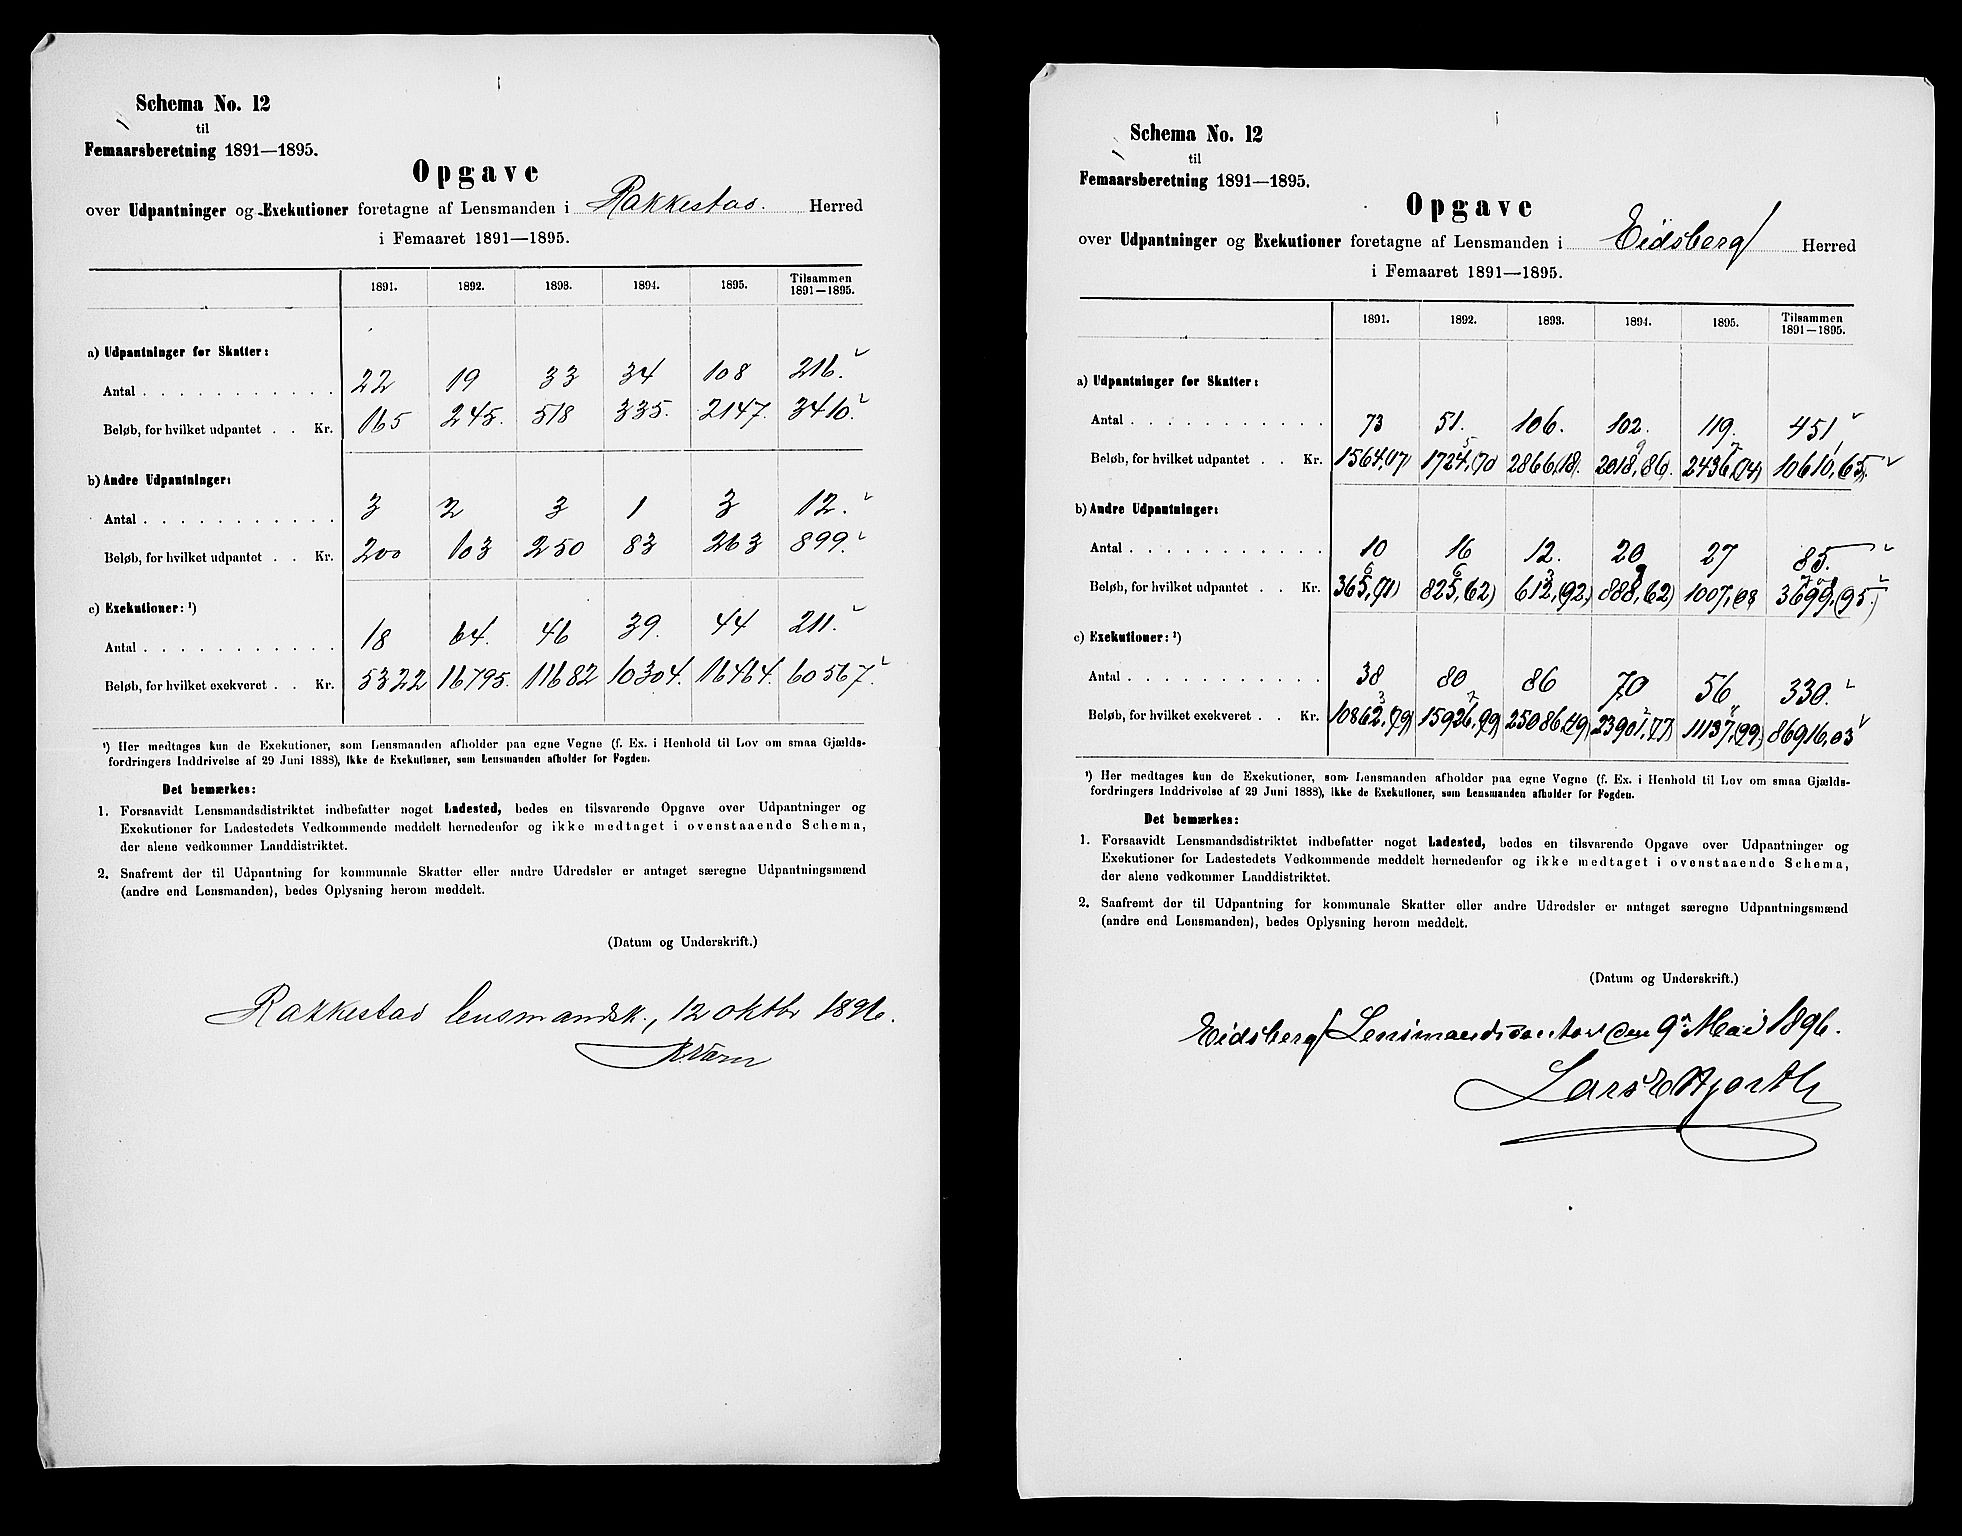 Schema No. 12
til
Femaarsberetning 1891—1895.
Opgave
over Udpantninger og Exekutioner foretagne af Lensmanden i Rakkestad. Herred
i Femaaret 1891—1895.
1891. 1892. 1893. 1894. 1895. Tilsammen 1891—1895.
a) Udpantninger for Skatter:
Antal . . . . . . . . . . . 22 19 33 34 108 216.
Beløb, for hvilket udpantet . . Kr. 165 245. 518 335. 2147. 3410.
b) Andre Udpantninger:
Antal . . . . . . . . . . . 3 2 3 1 3 12.
Beløb, for hvilket udpantet . . Kr. 200 103 250 83 263 899.
c) Exekutioner: ¹)
Antal . . . . . . . . . . . 18 64. 46 39. 44 211.
Beløb, for hvilket exekveret . . Kr. 5322 16795. 11682 10304. 16464. 60567.
¹) Her medtages kun de Exekutioner, som Lensmanden afholder paa egne Vegne (f. Ex. i Henhold til Lov om smaa Gjælds-
fordringers Inddrivelse af 29 Juni 1888), ikke de Exekutioner, som Lensmanden afholder for Fogden.
Det bemærkes:
1. Forsaavidt Lensmandsdistriktet indbefatter noget Ladested, bedes en tilsvarende Opgave over Udpantninger og
Exekutioner for Ladestedets Vedkommende meddelt hernedenfor og ikke medtaget i ovenstaaende Schema,
der alene vedkommer Landdistriktet.
2. Saafremt der til Udpantning for kommunale Skatter eller andre Udredsler er antaget særegne Udpantningsmænd
(andre end Lensmanden), bedes Oplysning herom meddelt.
(Datum og Underskrift.)
Rakkestad lensmandsk., 12 oktbr 1896.

Schema No. 12
til
Femaarsberetning 1891—1895.
Opgave
over Udpantninger og Exekutioner foretagne af Lensmanden i Eidsberg Herred
i Femaaret 1891—1895.
1891. 1892. 1893. 1894. 1895. Tilsammen 1891—1895.
a) Udpantninger for Skatter:
Antal . . . . . . . . . . . 73 51. 106. 102. 119. 451
Beløb, for hvilket udpantet . . Kr. 1564,07) 1724,70 2866,18. 2018,86. 2436,94) 10610,65.
b) Andre Udpantninger:
Antal . . . . . . . . . . . 10 16 12. 20 27 85.
Beløb, for hvilket udpantet . . Kr. 365,71) 825,62) 612,(92,) 888,62) 1007,08 3699,(95.)
c) Exekutioner: ¹)
Antal . . . . . . . . . . . 38 80 86 70 56 330.
Beløb, for hvilket exekveret . . Kr. 10862,79) 15926,99) 25086,49) 23901,77) 11137,(99.) 86916,03
¹) Her medtages kun de Exekutioner, som Lensmanden afholder paa egne Vegne (f. Ex. i Henhold til Lov om smaa Gjælds-
fordringers Inddrivelse af 29 Juni 1888), ikke de Exekutioner, som Lensmanden afholder for Fogden.
Det bemærkes:
1. Forsaavidt Lensmandsdistriktet indbefatter noget Ladested, bedes en tilsvarende Opgave over Udpantninger og
Exekutioner for Ladestedets Vedkommende meddelt hernedenfor og ikke medtaget i ovenstaaende Schema,
der alene vedkommer Landdistriktet.
2. Saafremt der til Udpantning for kommunale Skatter eller andre Udredsler er antaget særegne Udpantningsmænd
(andre end Lensmanden), bedes Oplysning herom meddelt.
(Datum og Underskrift.)
Eidsberg Lensmandscontor den 9n Mai 1896.
Lars E Hjorth